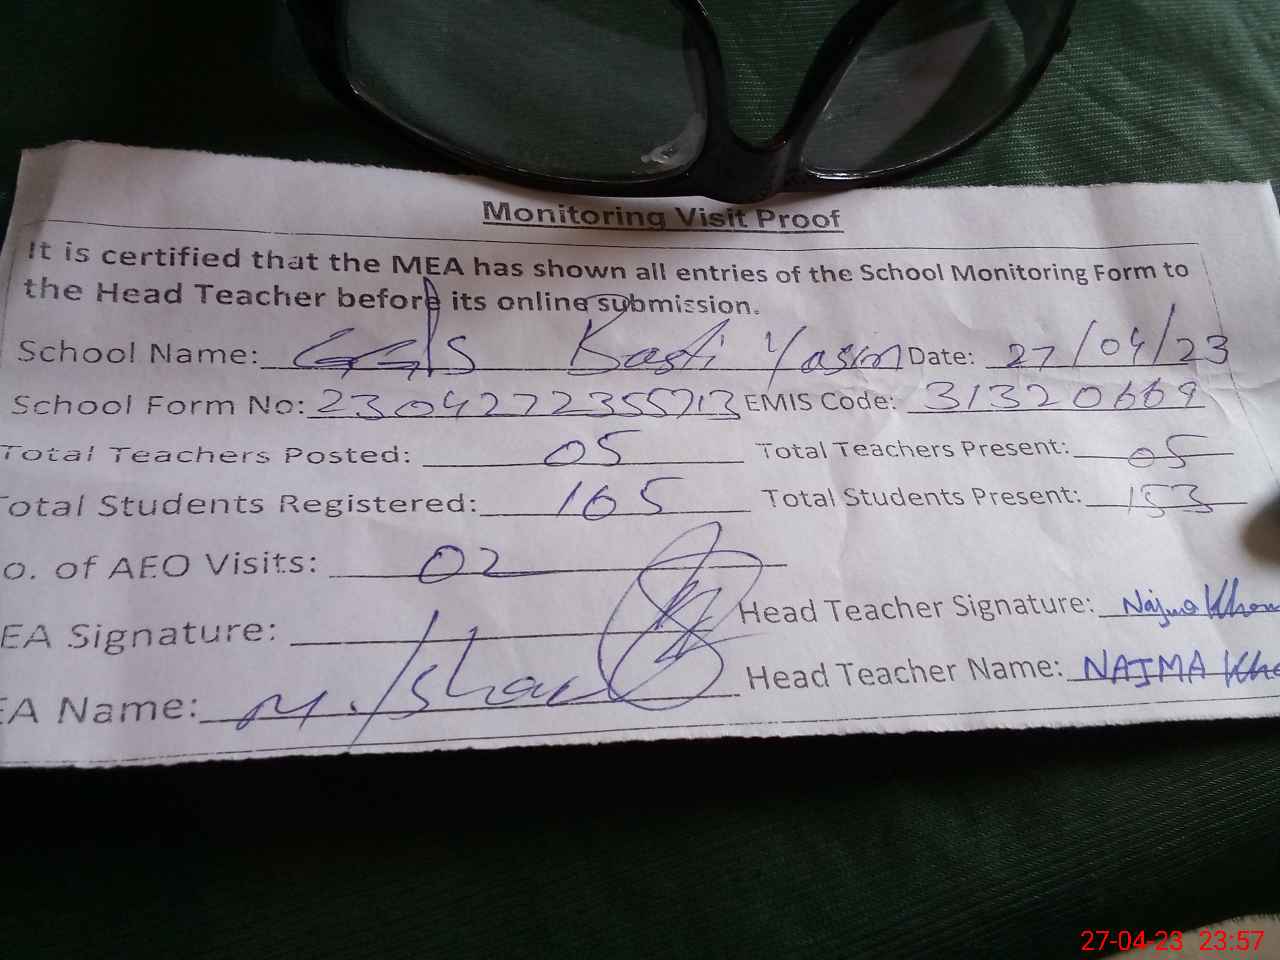 Monitoring Visit Proof
It is certified that the MEA has shown all entries of the School Monitoring Form to
the Head Teacher before its online submission.
School Name: Basti Yasin Date: 27/04/23
School Form No: EMIS Code: 31320669
Total Teachers Posted: 05 Total Teachers Present: 05
Total Students Registered: 165 Total Students Present: 153
o. of AEO Visits: 02
EA Signature: Head Teacher Signature: Najma Khan
EA Name: M. Head Teacher Name: NAJMA Kha
27-04-23 23:57